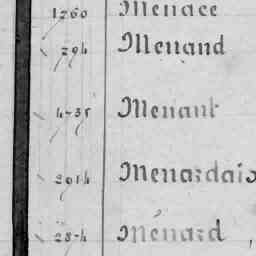 1260 Menace
294 Menand
4-35 Menant
2914 Menardais
28-4 Ménard,